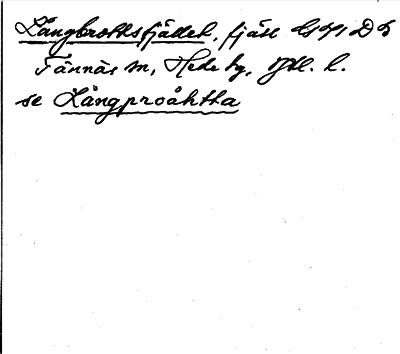 Långbrottsfjället, fjäll D5
Tännäs sn, Hede tg, Hjd. l.
se Långproåhtta